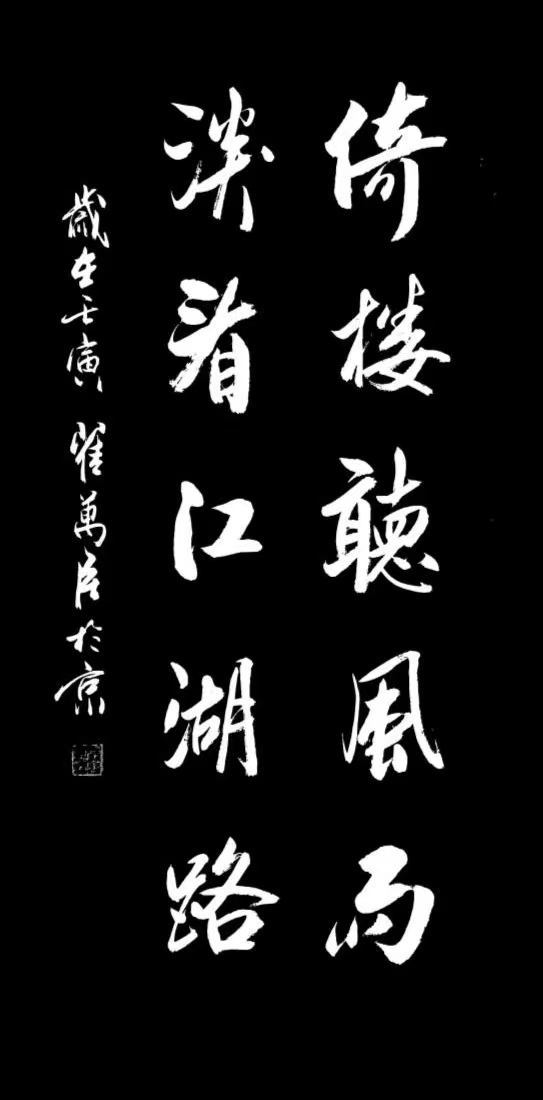 倚楼聽風雨
淡看江湖路
歲在壬寅 翟萬居於京